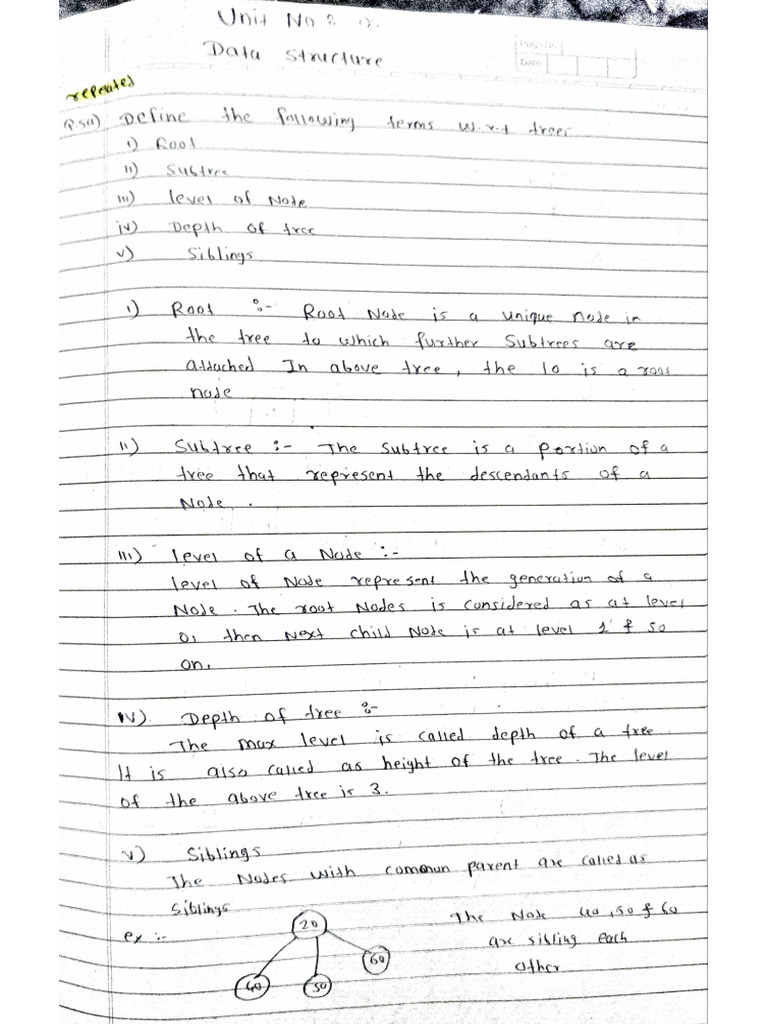 Unit No 2
Data Structure
Page No.
Date
repeated
Q.5a) Define the following terms w.r.t trees
i) Root
ii) Subtree
iii) level of Node
iv) Depth of tree
v) Siblings
i) Root :- Root Node is a unique node in
the tree to which further Subtrees are
attached In above tree, the 10 is a root
node
ii) Subtree :- The Subtree is a portion of a
tree that represent the descendants of a
Node.
iii) level of a Node :-
level of Node represent the generation of a
Node. The root Nodes is considered as at level
0, then Next child Node is at level 1 & so
on.
iv) Depth of tree :-
The max level is called depth of a tree
It is also called as height of the tree. The level
of the above tree is 3.
v) Siblings
The Nodes with common parent are called as
Siblings
ex :-
20
40
50
60
The Node 40, 50 & 60
are sibling each
other